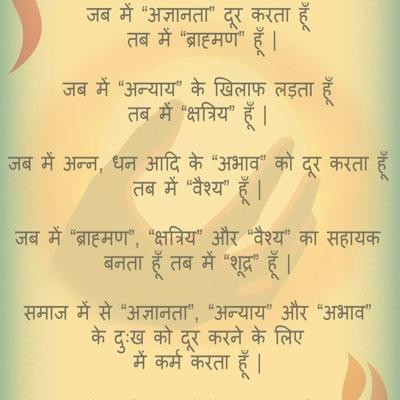 जब में “अज्ञानता” दूर करता हूँ
तब में “ब्राह्मण” हूँ |
जब में “अन्याय” के खिलाफ लड़ता हूँ
तब में “क्षत्रिय” हूँ |
जब में अन्न, धन आदि के “अभाव” को दूर करता हूँ
तब में “वैश्य” हूँ |
जब में “ब्राह्मण”, “क्षत्रिय” और “वैश्य” का सहायक
बनता हूँ तब में “शूद्र” हूँ |
समाज में से “अज्ञानता”, “अन्याय” और “अभाव”
के दुःख को दूर करने के लिए
में कर्म करता हूँ |